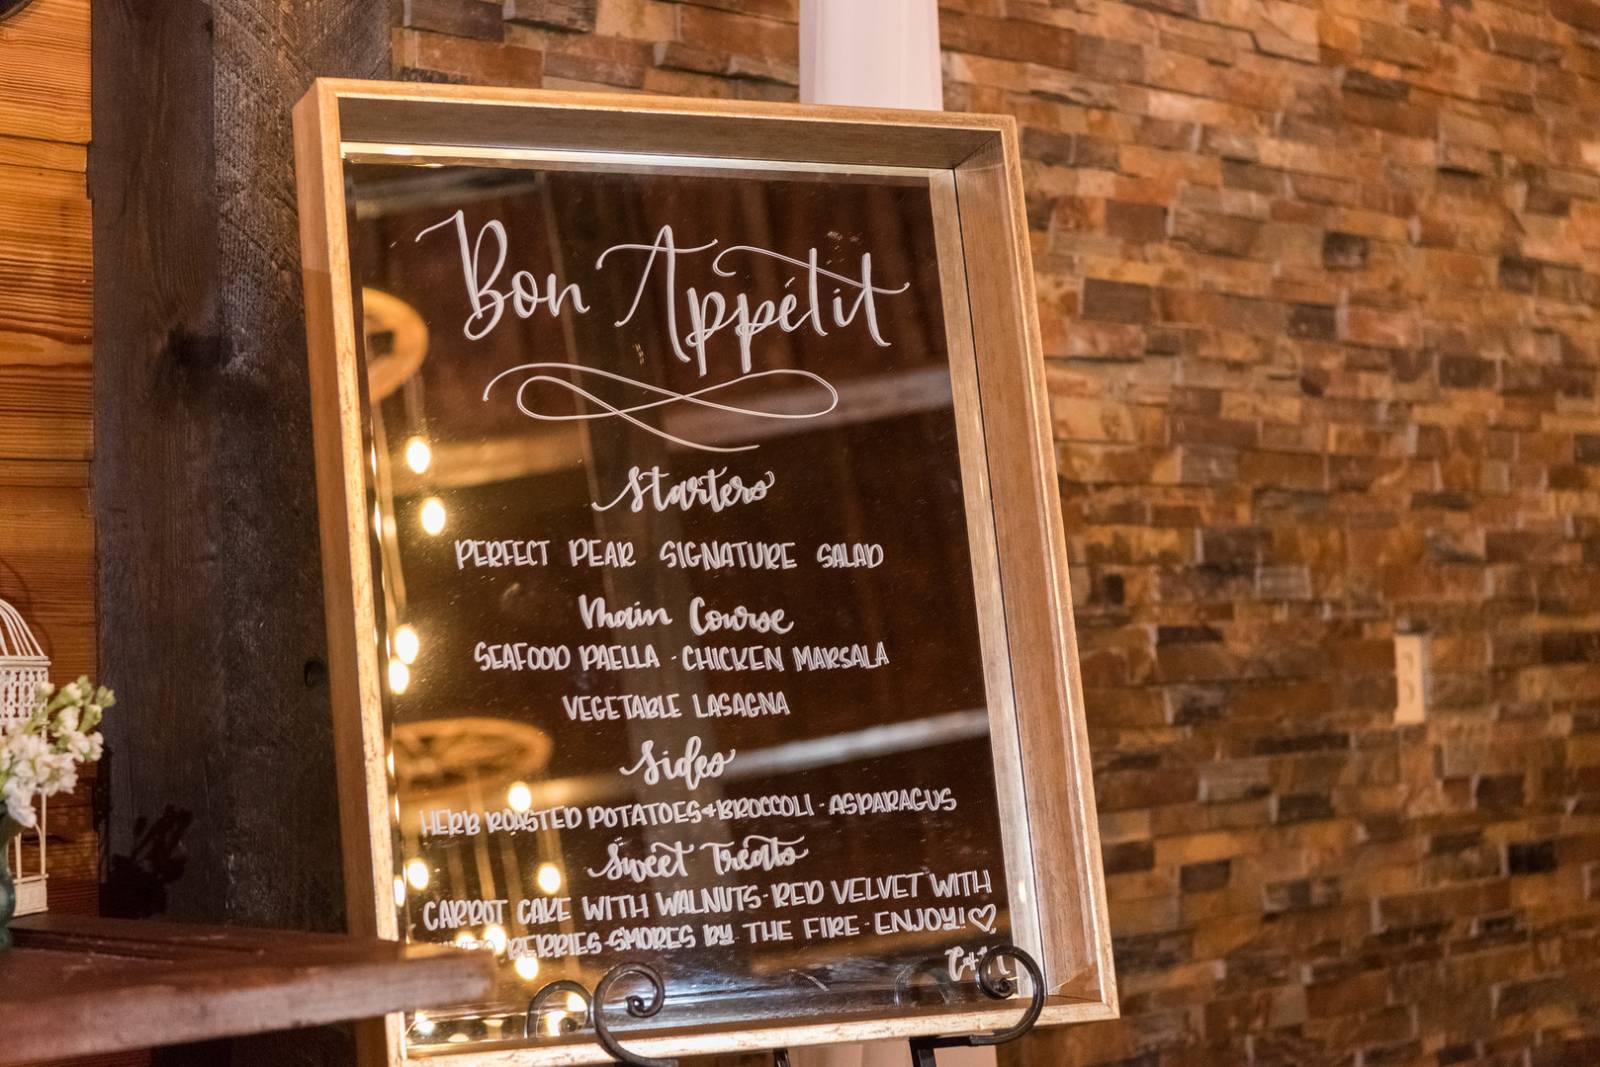 Bon Appétit
Starters
PERFECT PEAR SIGNATURE SALAD
Main Course
SEAFOOD PAELLA · CHICKEN MARSALA
VEGETABLE LASAGNA
Sides
HERB ROASTED POTATOES + BROCCOLI · ASPARAGUS
Sweet Treats
CARROT CAKE WITH WALNUTS · RED VELVET WITH
BERRIES · SMORES BY THE FIRE · ENJOY! ♡